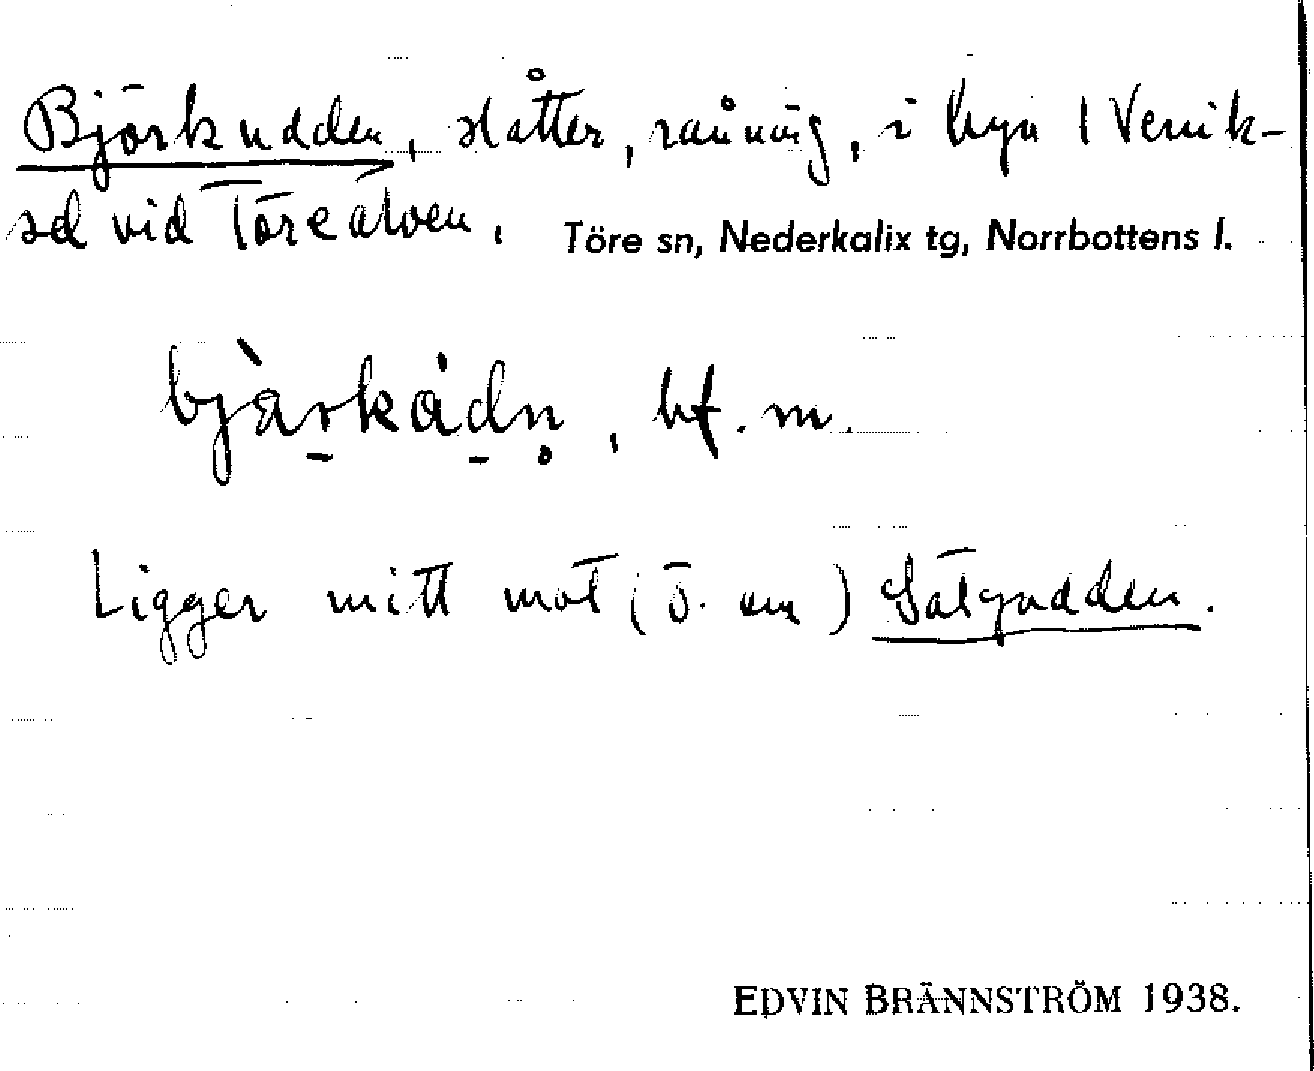 Björkudden, slåtter, råning, i byn 1 Vemik-
sel vid Töreälven. Töre sn, Nederkalix tg, Norrbottens l.
bjàrkàdn, bf. m.
Ligger mitt mot (ö. om) Såtgudden.
EDVIN BRÄNNSTRÖM 1938.